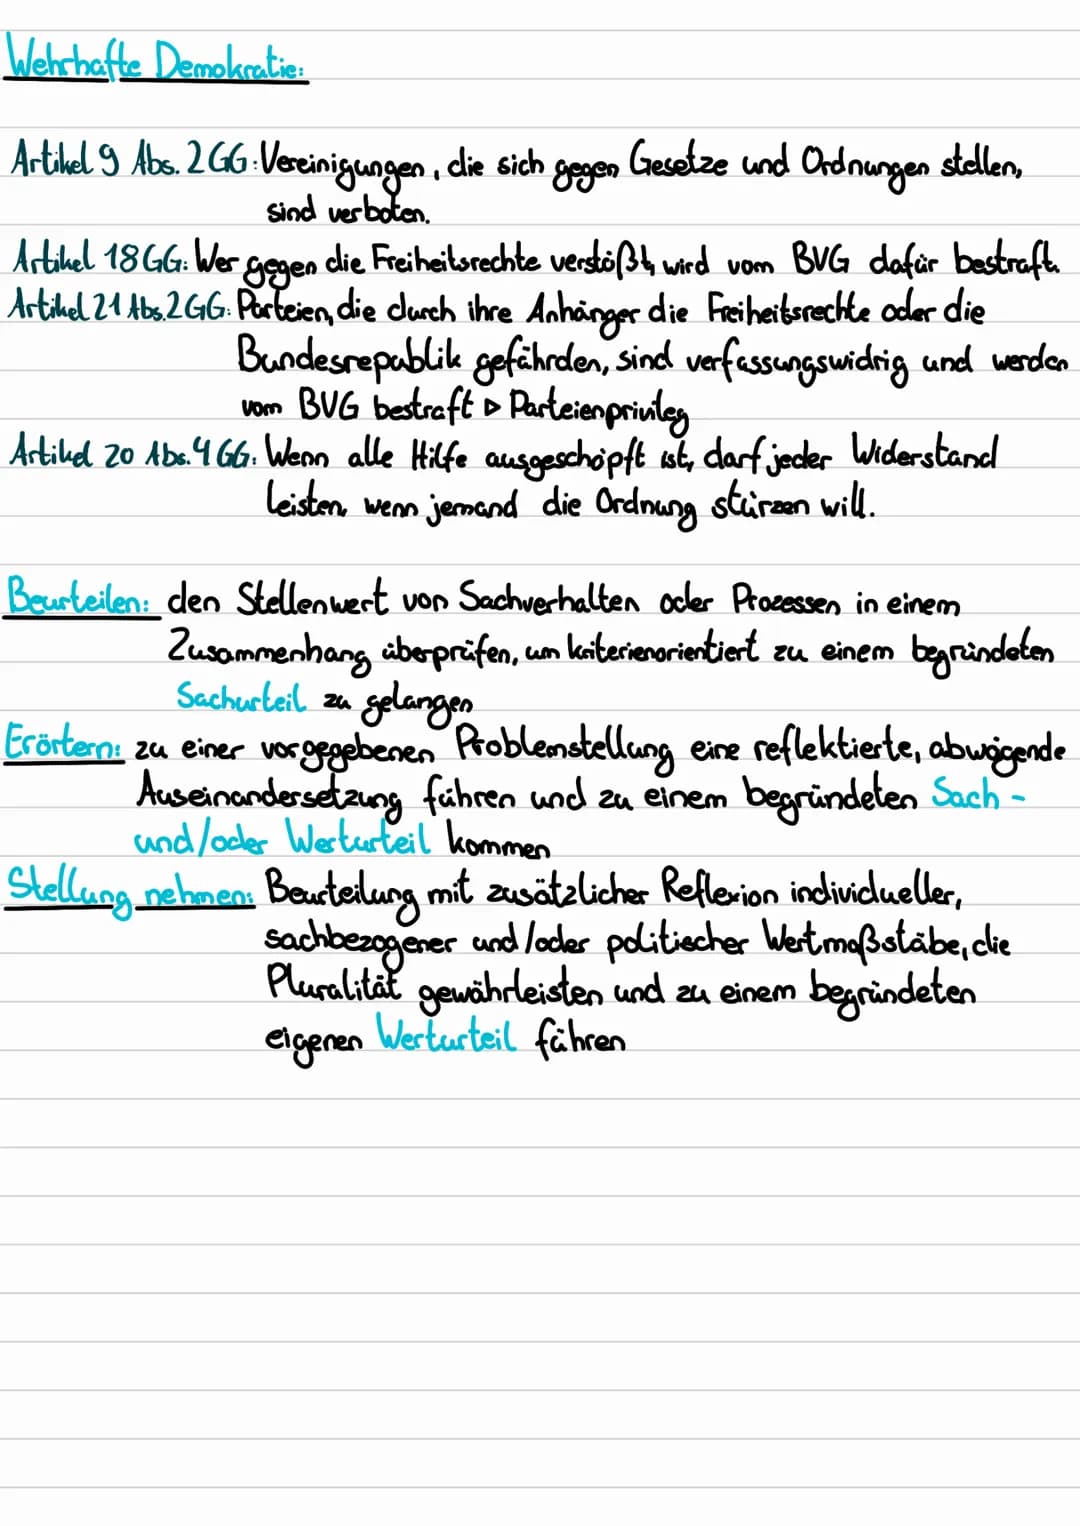 Wehrhafte Demokratie:
Artikel 9 Abs. 2 GG: Vereinigungen, die sich gegen Gesetze und Ordnungen stellen,
sind verboten.
Artikel 18 GG: Wer gegen die Freiheitsrechte verstößt, wird vom BVG dafür bestraft.
Artikel 21 Abs. 2 GG: Parteien, die durch ihre Anhänger die Freiheitsrechte oder die
Bundesrepublik gefährden, sind verfassungswidrig und werden
vom BVG bestraft ▷ Parteienprivileg
Artikel 20 Abs. 4 GG: Wenn alle Hilfe ausgeschöpft ist, darf jeder Widerstand
leisten, wenn jemand die Ordnung stürzen will.
Beurteilen: den Stellenwert von Sachverhalten oder Prozessen in einem
Zusammenhang überprüfen, um kriterienorientiert zu einem begründeten
Sachurteil zu gelangen
Erörtern: zu einer vorgegebenen Problemstellung eine reflektierte, abwägende
Auseinandersetzung führen und zu einem begründeten Sach-
und/oder Werturteil kommen
Stellung nehmen: Beurteilung mit zusätzlicher Reflexion individueller,
sachbezogener und/oder politischer Wertmaßstäbe, die
Pluralität gewährleisten und zu einem begründeten
eigenen Werturteil führen